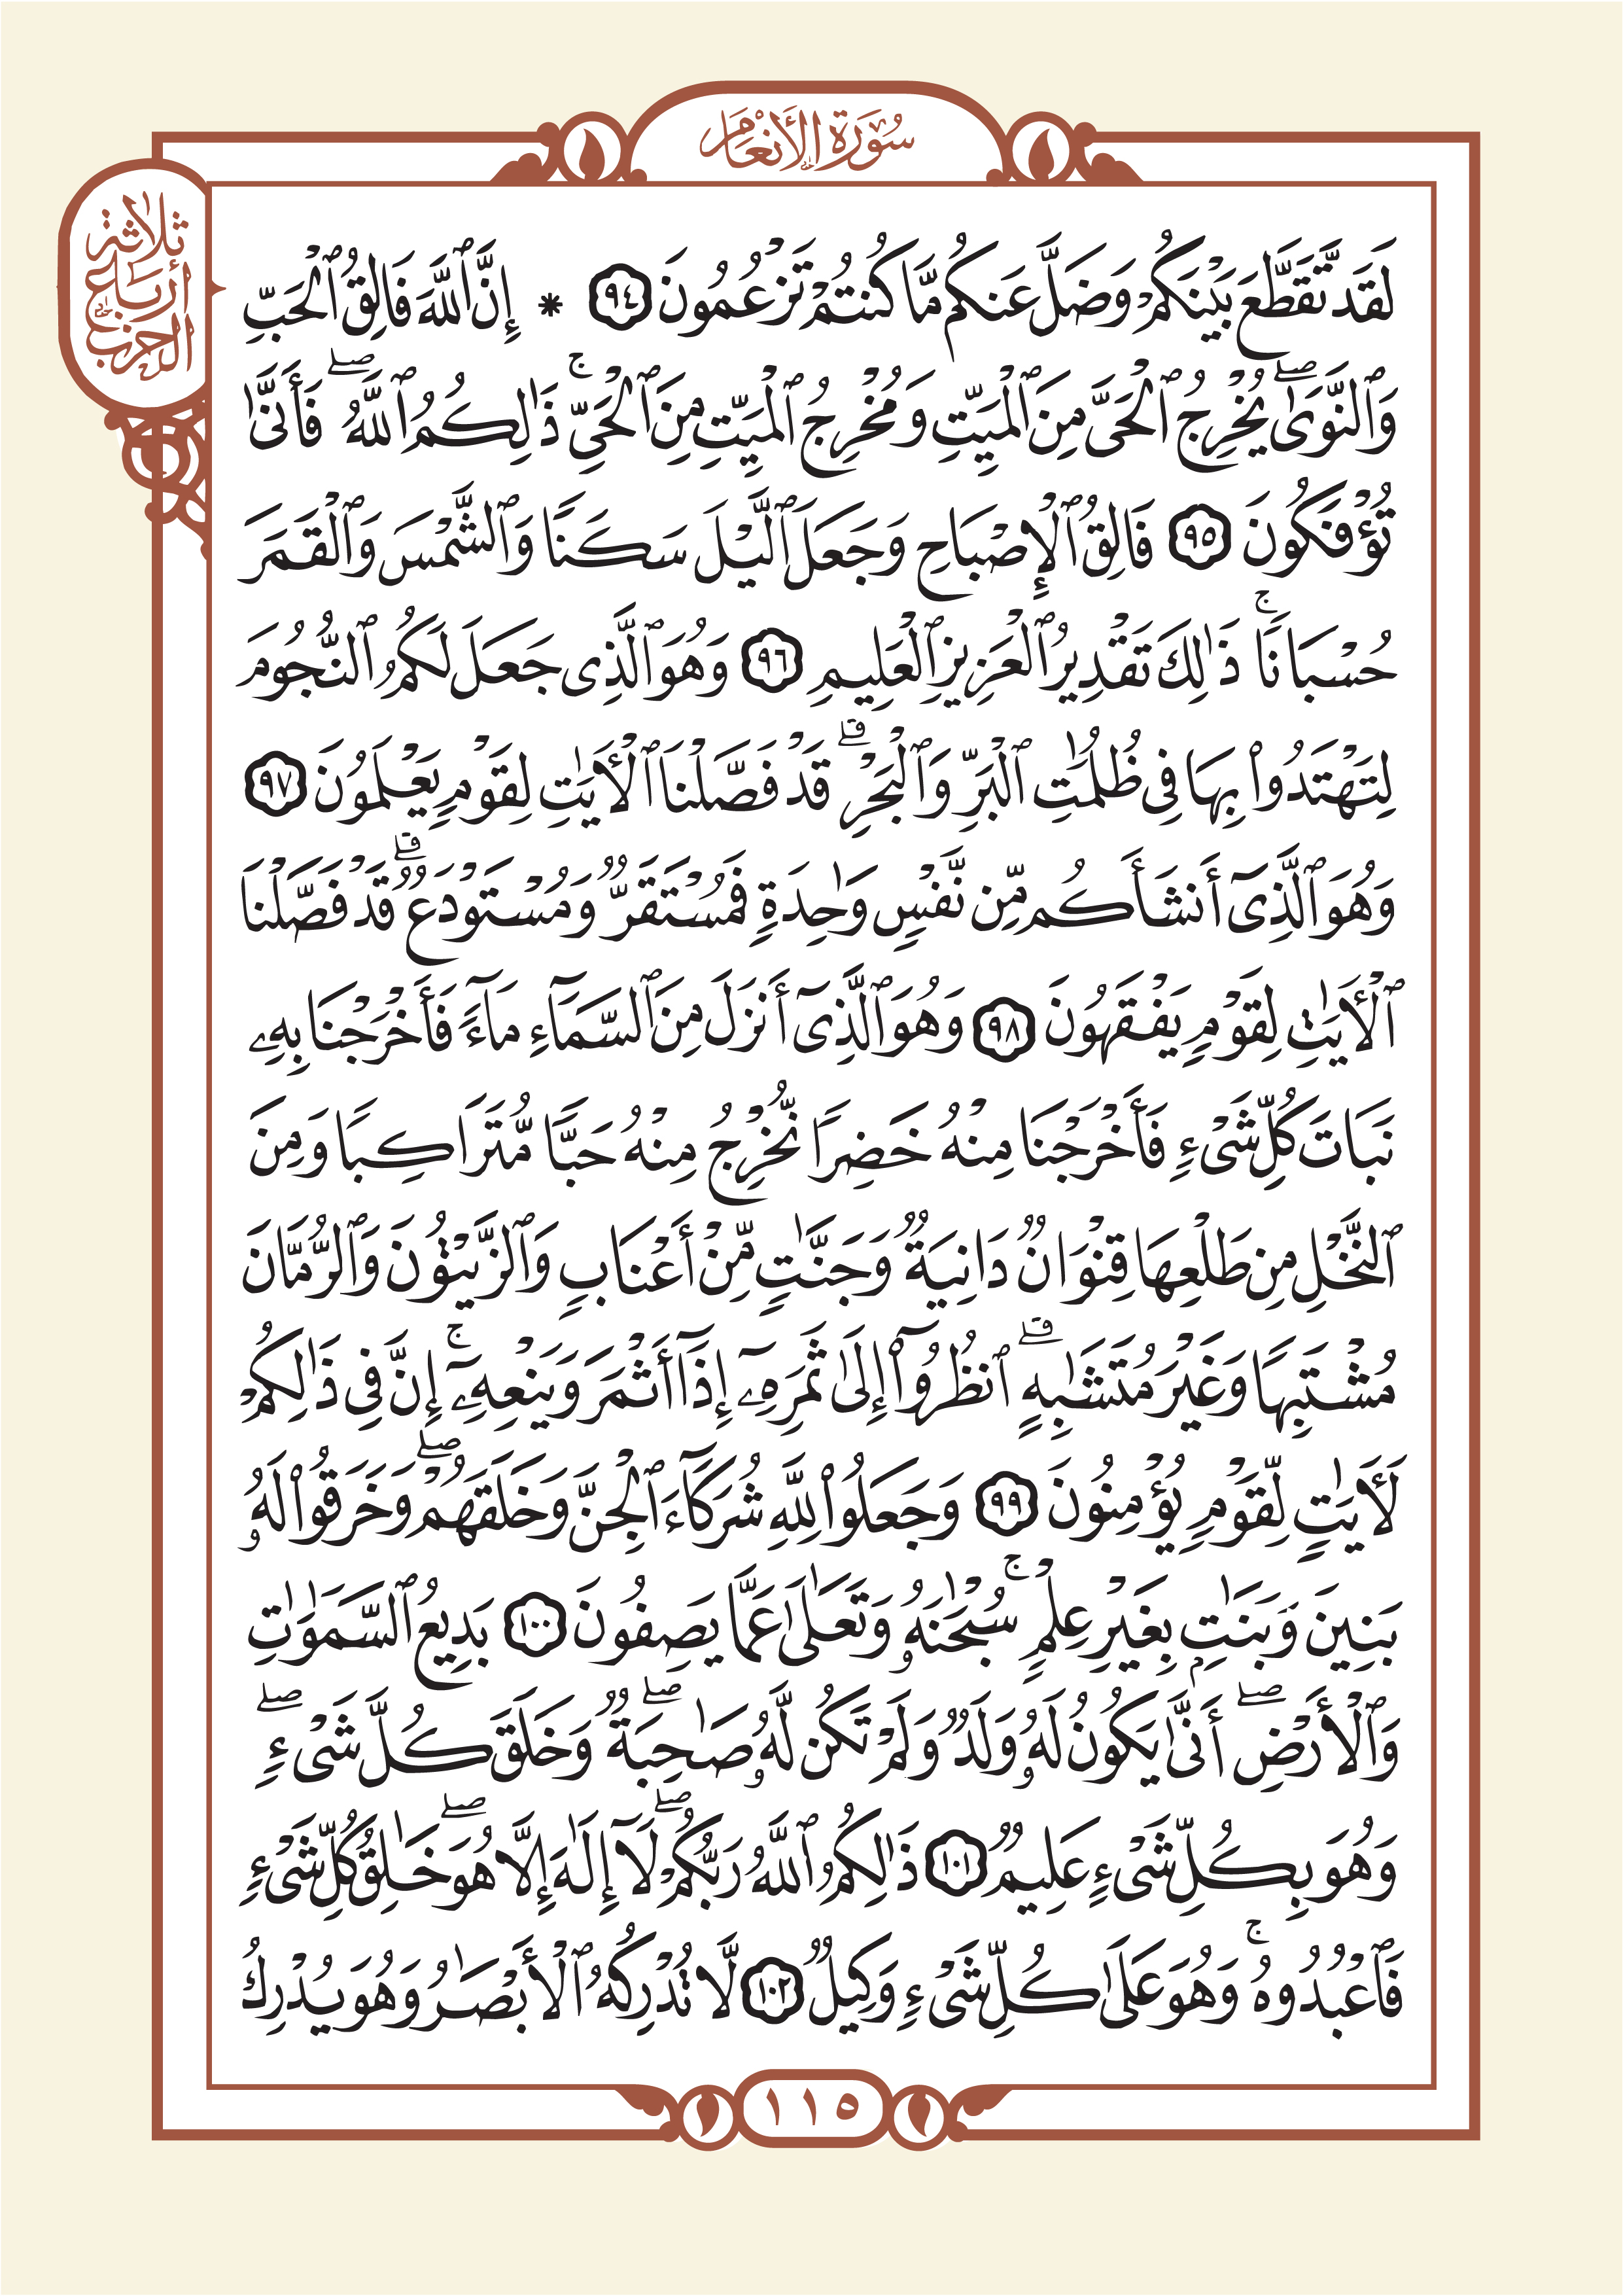 سُورَةُ الأَنْعَامِ
ثلاثة
أرباع
الحزب
لَقَد تَّقَطَّعَ بَيْنَكُمْ وَضَلَّ عَنكُم مَّا كُنتُمْ تَزْعُمُونَ ٩٤ * إِنَّ ٱللَّهَ فَالِقُ ٱلْحَبِّ
وَٱلنَّوَىٰۖ يُخْرِجُ ٱلْحَىَّ مِنَ ٱلْمَيِّتِ وَمُخْرِجُ ٱلْمَيِّتِ مِنَ ٱلْحَىِّۚ ذَٰلِكُمُ ٱللَّهُۖ فَأَنَّىٰ
تُؤْفَكُونَ ٩٥ فَالِقُ ٱلْإِصْبَاحِ وَجَعَلَ ٱلَّيْلَ سَكَنًا وَٱلشَّمْسَ وَٱلْقَمَرَ
حُسْبَانًاۚ ذَٰلِكَ تَقْدِيرُ ٱلْعَزِيزِ ٱلْعَلِيمِ ٩٦ وَهُوَ ٱلَّذِى جَعَلَ لَكُمُ ٱلنُّجُومَ
لِتَهْتَدُوا۟ بِهَا فِى ظُلُمَٰتِ ٱلْبَرِّ وَٱلْبَحْرِۗ قَدْ فَصَّلْنَا ٱلْأَيَٰتِ لِقَوْمٍ يَعْلَمُونَ ٩٧
وَهُوَ ٱلَّذِىٓ أَنشَأَكُم مِّن نَّفْسٍ وَٰحِدَةٍ فَمُسْتَقَرٌّ وَمُسْتَوْدَعٌۗ قَدْ فَصَّلْنَا
ٱلْأَيَٰتِ لِقَوْمٍ يَفْقَهُونَ ٩٨ وَهُوَ ٱلَّذِىٓ أَنزَلَ مِنَ ٱلسَّمَآءِ مَآءً فَأَخْرَجْنَا بِهِۦ
نَبَاتَ كُلِّ شَىْءٍ فَأَخْرَجْنَا مِنْهُ خَضِرًا نُّخْرِجُ مِنْهُ حَبًّا مُّتَرَاكِبًا وَمِنَ
ٱلنَّخْلِ مِن طَلْعِهَا قِنْوَانٌ دَانِيَةٌ وَجَنَّٰتٍ مِّنْ أَعْنَابٍ وَٱلزَّيْتُونَ وَٱلرُّمَّانَ
مُشْتَبِهًا وَغَيْرَ مُتَشَٰبِهٍۗ ٱنظُرُوٓا۟ إِلَىٰ ثَمَرِهِۦٓ إِذَآ أَثْمَرَ وَيَنْعِهِۦٓۚ إِنَّ فِى ذَٰلِكُمْ
لَأَيَٰتٍ لِّقَوْمٍ يُؤْمِنُونَ ٩٩ وَجَعَلُوا۟ لِلَّهِ شُرَكَآءَ ٱلْجِنَّ وَخَلَقَهُمْۖ وَخَرَقُوا۟ لَهُۥ
بَنِينَ وَبَنَٰتِۭ بِغَيْرِ عِلْمٍۚ سُبْحَٰنَهُۥ وَتَعَٰلَىٰ عَمَّا يَصِفُونَ ١٠٠ بَدِيعُ ٱلسَّمَٰوَٰتِ
وَٱلْأَرْضِۖ أَنَّىٰ يَكُونُ لَهُۥ وَلَدٌ وَلَمْ تَكُن لَّهُۥ صَٰحِبَةٌۖ وَخَلَقَ كُلَّ شَىْءٍۖ
وَهُوَ بِكُلِّ شَىْءٍ عَلِيمٌ ١٠١ ذَٰلِكُمُ ٱللَّهُ رَبُّكُمْۖ لَآ إِلَٰهَ إِلَّا هُوَۖ خَٰلِقُ كُلِّ شَىْءٍ
فَٱعْبُدُوهُۚ وَهُوَ عَلَىٰ كُلِّ شَىْءٍ وَكِيلٌ ١٠٢ لَّا تُدْرِكُهُ ٱلْأَبْصَٰرُ وَهُوَ يُدْرِكُ
١١٥